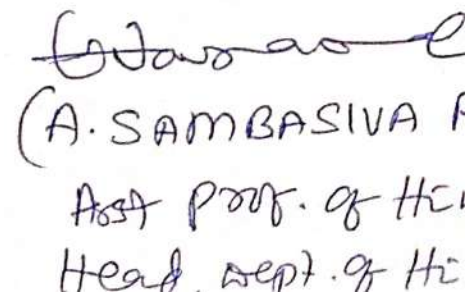 (A. SAMBASIVA R
Asst Prof. of Hin
Head, Dept. of Hi